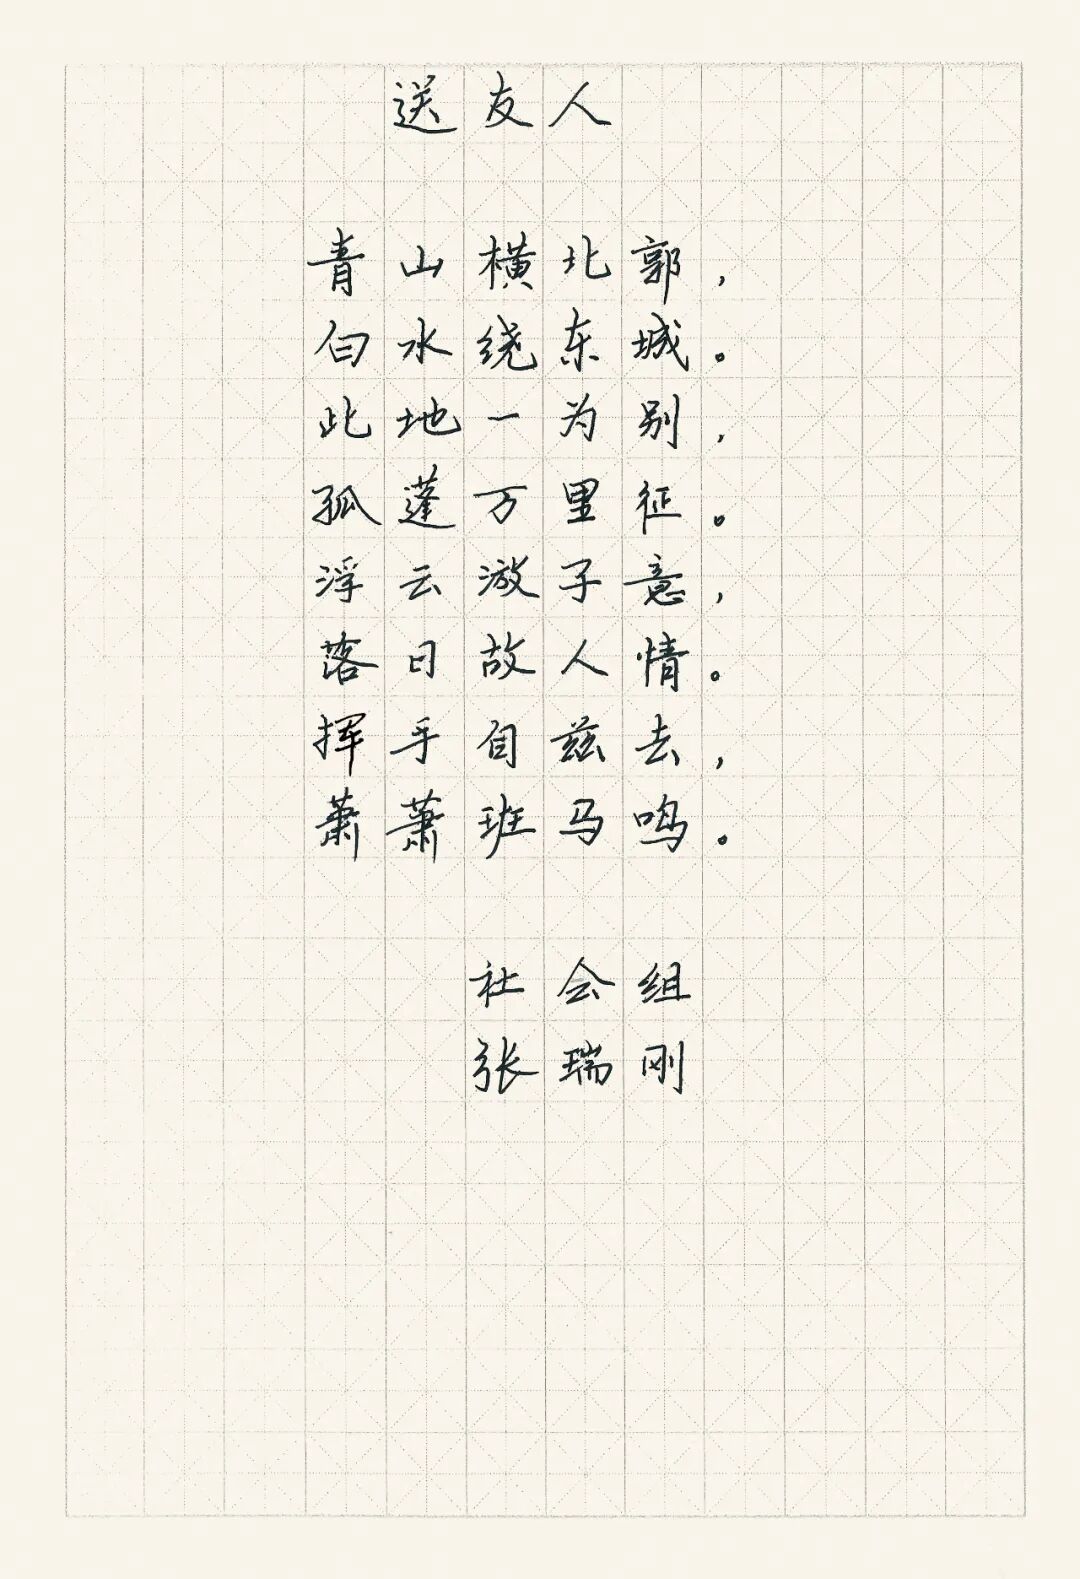 送友人
青山横北郭，
白水绕东城。
此地一为别，
孤蓬万里征。
浮云游子意，
落日故人情。
挥手自兹去，
萧萧班马鸣。
社会组
张瑞刚